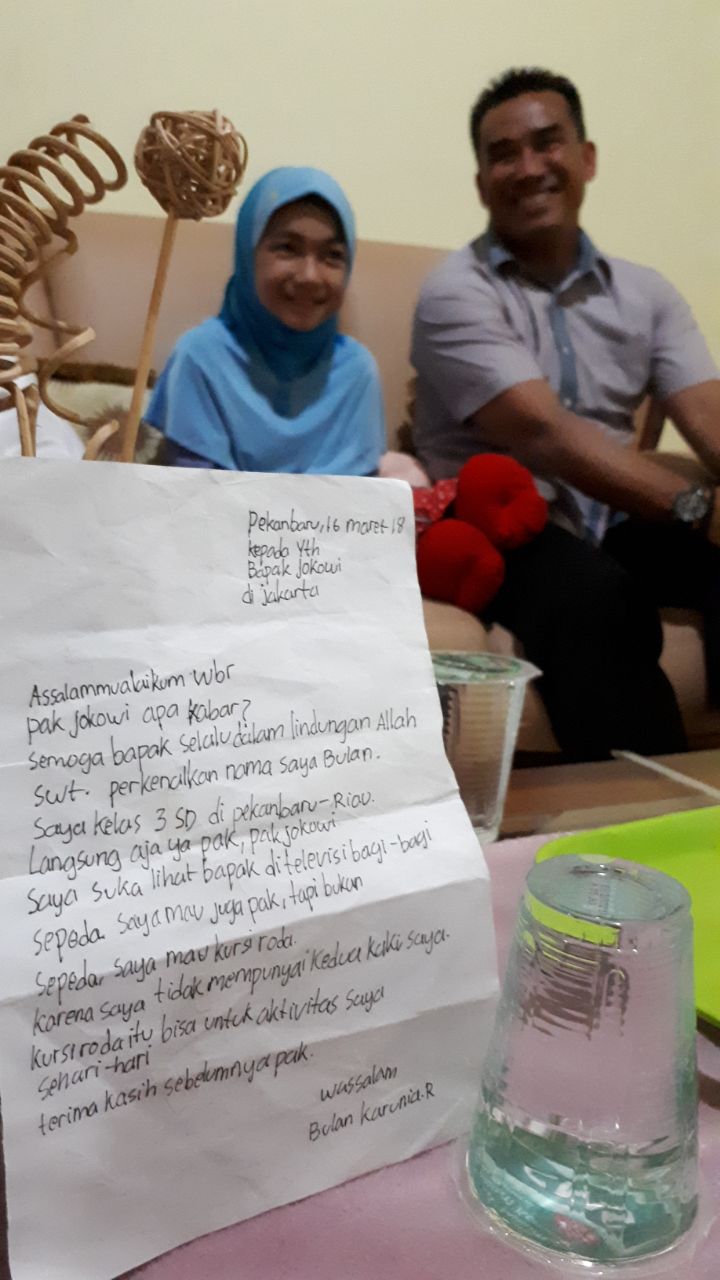 Pekanbaru, 16 maret 18
kepada Yth
Bapak jokowi
di jakarta
Assalammualaikum wbr
pak jokowi apa kabar?
semoga bapak selalu dalam lindungan Allah
swt. perkenalkan nama saya Bulan.
Saya kelas 3 SD di pekanbaru-Riau.
Langsung aja ya pak, pak jokowi
saya suka lihat bapak ditelevisi bagi-bagi
sepeda. saya mau juga pak, tapi bukan
sepeda, saya mau kursi roda.
karena saya tidak mempunyai kedua kaki saya.
kursi roda itu bisa untuk aktivitas saya
sehari-hari
terima kasih sebelumnya pak.
wassalam
Bulan karunia.R